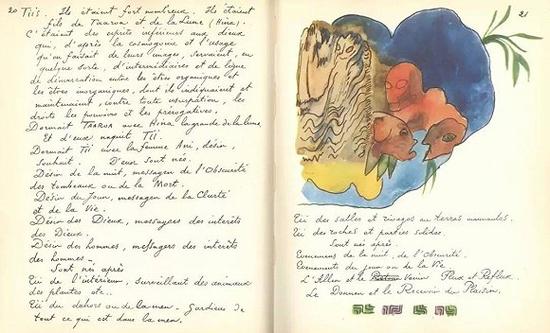 20 Tiis. Ils étaient fort nombreux. Ils étaient
fils de Taaroa et de la Lune (Hina).
C'étaient des esprits inférieurs aux dieux
qui, d'après la cosmogonie et l'usage
qu'on faisait de leurs images, servaient, en
quelque sorte, d'intermédiaires et de ligne
de démarcation entre les êtres organiques et
les êtres inorganiques, dont ils indiquaient et
maintenaient, contre toute usurpation, les
droits les pouvoirs et les prérogatives.
Dormait TAAROA avec Hina la grande de la lune
Et d'eux naquit Tii.
Dormait Tii avec la femme Ani, désir,
souhait. D'eux sont nés.
Désir de la nuit, messager de l'Obscurité
des tombeaux ou de la Mort.
Désir du Jour, messager de la Clarté
et de la Vie.
Désir des Dieux, messagers des intérêts
des Dieux.
Désir des hommes, messagers des intérêts
des hommes.
Sont nés après
Tii de l'intérieur, surveillant des animaux
des plantes etc..
Tii du dehors ou de la mer. Gardien de
tout ce qui est dans la mer.
21
Tii des salles et rivages ou terres mouvantes.
Tii des roches et parties solides.
Sont nés après.
Evènement de la nuit, de l'Obscurité.
Evènement du jour ou de la Vie
L'Aller et le Venir Flux et Reflux.
Le Donner et le Recevoir du Plaisir.